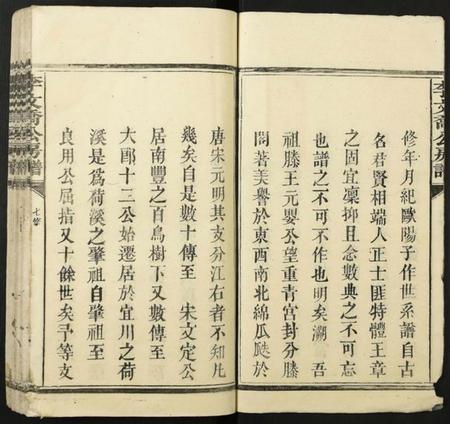 修年月紀歐陽子作世系譜自古
名君賢相端人正士匪特體王章
之固宜凜抑且念數典之不可忘
也譜之不可不作也明矣溯 吾
祖滕王元嬰公望重青宮封分滕
閣著美譽於東西南北綿瓜瓞於
唐宋元明其支分江右者不知凡
幾矣自是數十傳至 宋文定公
居南豐之百鳥樹下又數傳至
大郎十三公始遷居於宜川之荷
溪是為荷溪之肇祖自肇祖至
良用公屈指又十餘世矣予等支
李文喬公房譜
七修